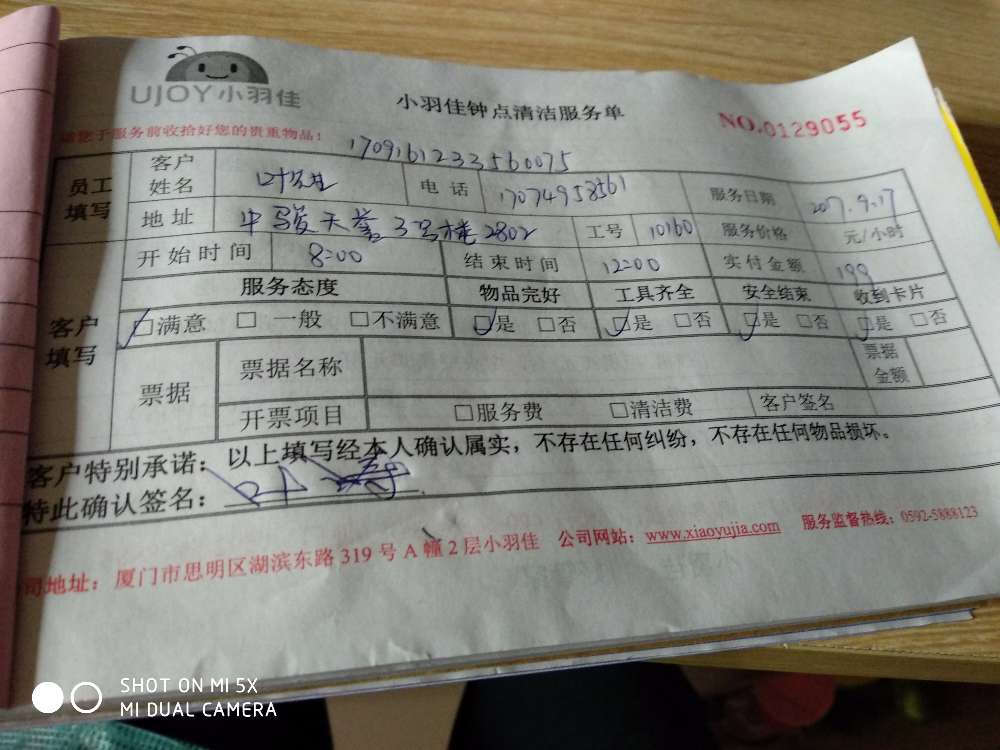 UJOY小羽佳
小羽佳钟点清洁服务单
NO.0129055
您于服务前收拾好您的贵重物品!
1709161233560075
员工填写 客户姓名 叶 电话 17074958561 服务日期 2017.9.17
地址 中骏天誉3号楼2802 工号 10160 服务价格 元/小时
开始时间 8:00 结束时间 12:00 实付金额 199
客户填写 服务态度 物品完好 工具齐全 安全结束 收到卡片
☑满意 □一般 □不满意 ☑是 □否 ☑是 □否 ☑是 □否 ☑是 □否
票据 票据名称 票据金额
开票项目 □服务费 □清洁费 客户签名
客户特别承诺:以上填写经本人确认属实,不存在任何纠纷,不存在任何物品损坏。
特此确认签名:叶
司地址:厦门市思明区湖滨东路319号A幢2层小羽佳 公司网站:www.xiaoyujia.com 服务监督热线:0592-5888123
SHOT ON MI 5X
MI DUAL CAMERA